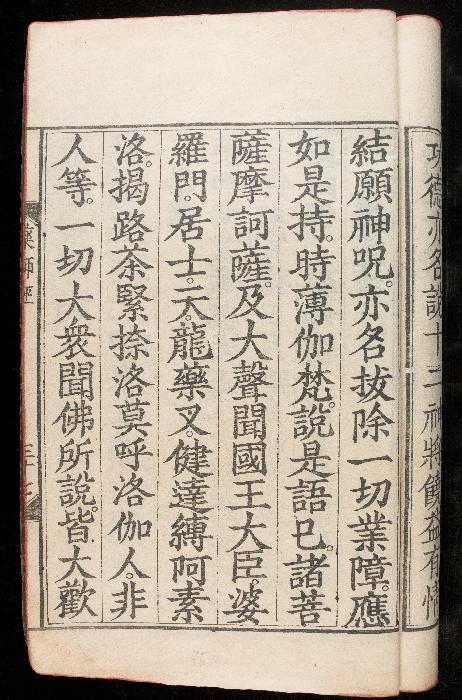 功德亦名說十二神將饒益有情
結願神呪。亦名拔除一切業障。應
如是持。時薄伽梵。說是語已。諸菩
薩摩訶薩。及大聲聞國王大臣。婆
羅門。居士。天。龍藥叉。健達縛阿素
洛。揭路荼緊捺洛莫呼洛伽人。非
人等。一切大衆聞佛所說。皆大歡
藥師經
三十七